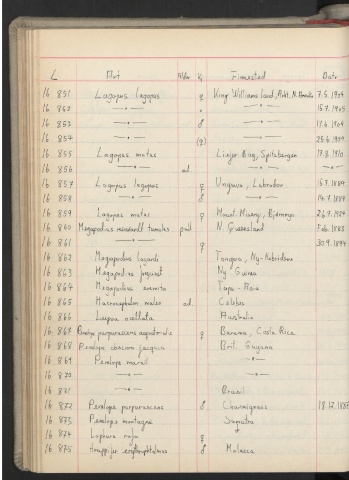 L Art Alder Kj. Finnested Dato
16 851 Lagopus lagopus ♀ King Williams land, Arkt. N. 7.5.1904
16 852 —"— " —"— 15.7.1905
16 853 —"— ♂ —"— 17.6.1904
16 854 —"— (♀) —"— 25.6.1904
16 855 Lagopus mutus Bay, Spitsbergen 17.8.1910
16 856 —"— ad. —"—
16 857 Lagopus lagopus ♀ Ungava, Labrador
16 858 —"— ♂ —"—
16 859 Lagopus mutus ♀ Mount
16 860 Megapodius tumulus pull N. Queensland
16 861 —"— ♀ 30.9.1894
16 862 Megapodius layardi Tongoa, Ny-Hebridene
16 863 Megapodius Ny Guinea
16 864 Megapodius eremita
16 865 Macrocephalon maleo ad. Celebes
16 866 Leipoa ocellata Australia
16 867 Penelope purpurascens ♀ Banama, Costa Rica
16 868 Penelope obscura jacquacu Brit. Guyana
16 869 Penelope marail —"—
16 870 —"— —"—
16 871 —"— Brasil
16 872 Penelope purpurascens ♂
16 873 Penelope montagni Sumatra
16 874 Lophura rufa ♀ —"—
16 875 erythrophthalmus ♂ Malacca